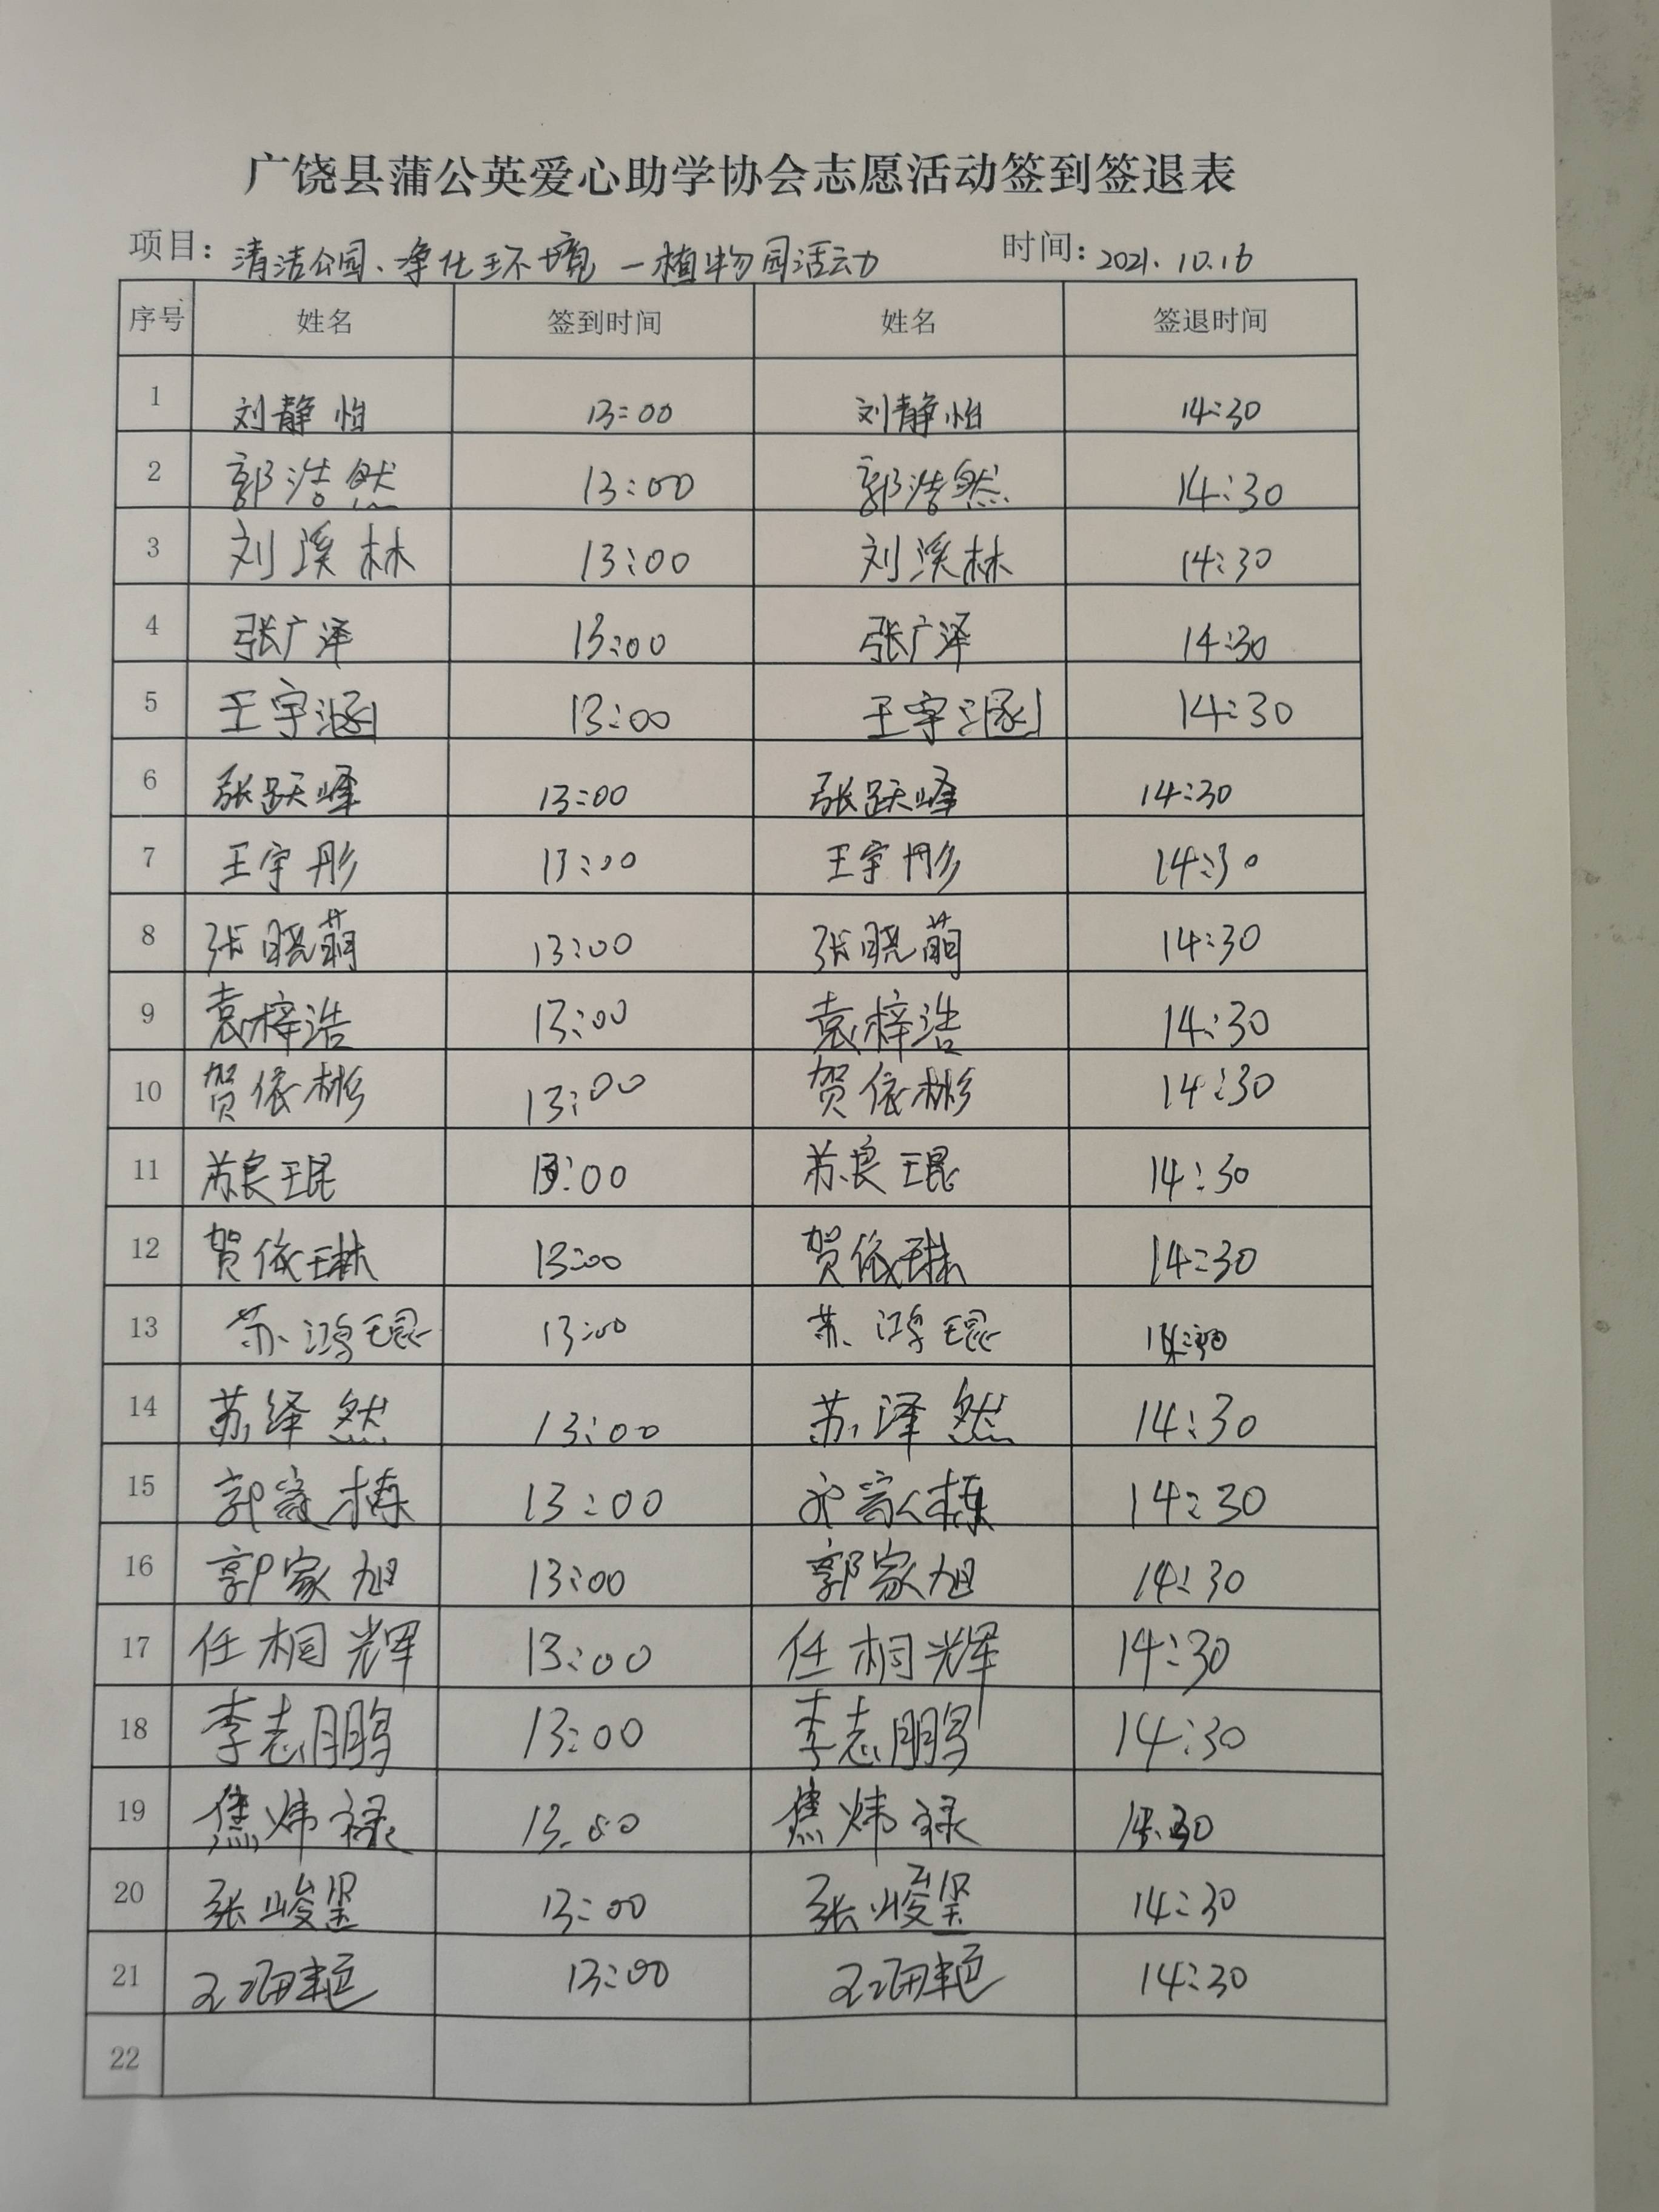 广饶县蒲公英爱心助学协会志愿活动签到签退表
项目：清洁公园、净化环境 一植物园活动 时间：2021.10.16
序号 姓名 签到时间 姓名 签退时间
1 刘静怡 13:00 刘静怡 14:30
2 郭浩然 13:00 郭浩然 14:30
3 刘溪林 13:00 刘溪林 14:30
4 张广泽 13:00 张广泽 14:30
5 王宇涵 13:00 王宇涵 14:30
6 张跃峰 13:00 张跃峰 14:30
7 王宇彤 13:00 王宇彤 14:30
8 张晓萌 13:00 张晓萌 14:30
9 袁梓浩 13:00 袁梓浩 14:30
10 贺依彬 13:00 贺依彬 14:30
11 苏良琨 13:00 苏良琨 14:30
12 贺依琳 13:00 贺依琳 14:30
13 苏鸿琨 13:00 苏鸿琨 14:30
14 苏绎然 13:00 苏泽然 14:30
15 郭家栋 13:00 郭家栋 14:30
16 郭家旭 13:00 郭家旭 14:30
17 任桐辉 13:00 任桐辉 14:30
18 李志鹏 13:00 李志鹏 14:30
19 焦炜禄 13.00 焦炜禄 14.30
20 张峻 13:00 张峻 14:30
21 13:00 14:30
22